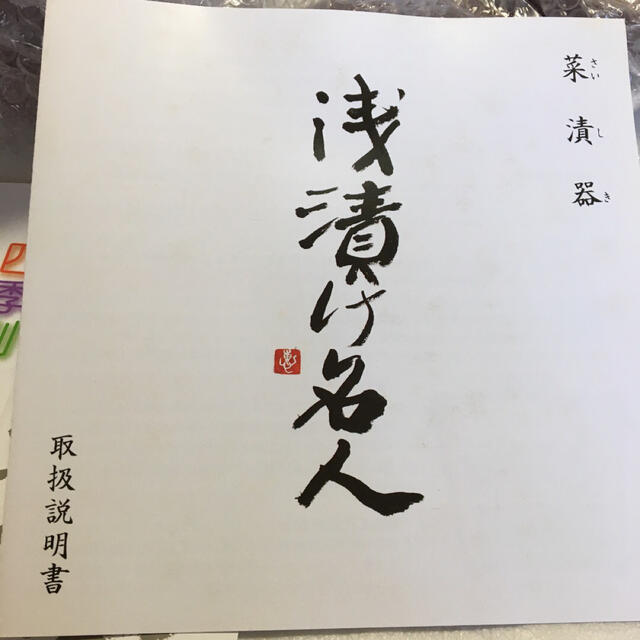 菜漬器
さいしき
浅漬け名人
取扱説明書
季